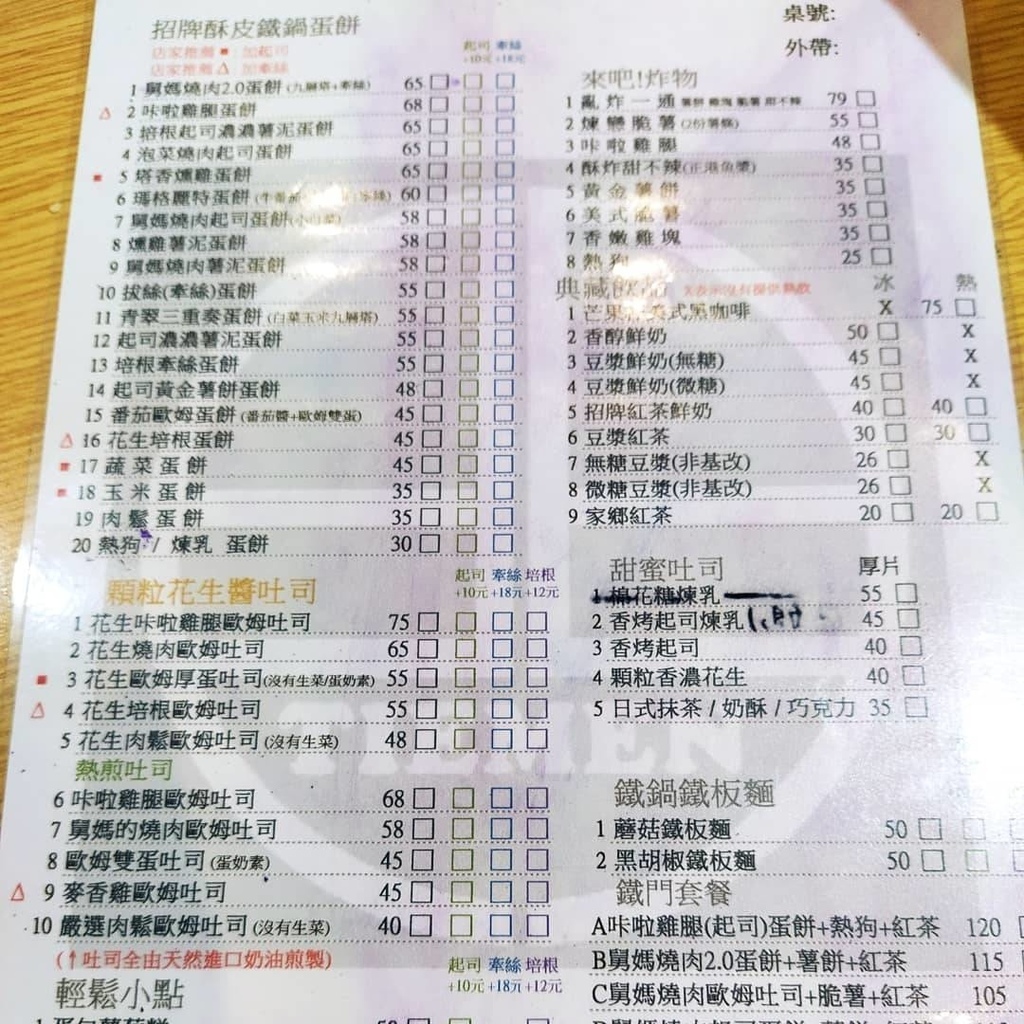 招牌酥皮鐵鍋蛋餅
店家推薦 ■ 加起司
店家推薦 △ 加牽絲
起司 牽絲
+10元 +18元
1 舅媽燒肉2.0蛋餅(九層塔+牽絲) 65 □ □ □
△ 2 咔啦雞腿蛋餅 68 □ □ □
3 培根起司濃濃薯泥蛋餅 65 □ □ □
4 泡菜燒肉起司蛋餅 65 □ □ □
■ 5 塔香燻雞蛋餅 65 □ □ □
6 瑪格麗特蛋餅 60 □ □ □
7 舅媽燒肉起司蛋餅(小白菜) 58 □ □ □
8 燻雞薯泥蛋餅 58 □ □ □
9 舅媽燒肉薯泥蛋餅 58 □ □ □
10 拔絲(牽絲)蛋餅 55 □ □ □
11 青翠三重奏蛋餅(白菜玉米九層塔) 55 □ □ □
12 起司濃濃薯泥蛋餅 55 □ □ □
13 培根牽絲蛋餅 55 □ □ □
14 起司黃金薯餅蛋餅 48 □ □ □
15 番茄歐姆蛋餅(番茄醬+歐姆雙蛋) 45 □ □ □
△ 16 花生培根蛋餅 45 □ □ □
■ 17 蔬菜蛋餅 45 □ □ □
■ 18 玉米蛋餅 35 □ □ □
19 肉鬆蛋餅 35 □ □ □
20 熱狗 / 煉乳 蛋餅 30 □ □ □
顆粒花生醬吐司
起司 牽絲 培根
+10元 +18元 +12元
1 花生咔啦雞腿歐姆吐司 75 □ □ □ □
2 花生燒肉歐姆吐司 65 □ □ □ □
■ 3 花生歐姆厚蛋吐司(沒有生菜/蛋奶素) 55 □ □ □ □
△ 4 花生培根歐姆吐司 55 □ □ □ □
5 花生肉鬆歐姆吐司(沒有生菜) 48 □ □ □ □
熱煎吐司
6 咔啦雞腿歐姆吐司 68 □ □ □ □
7 舅媽的燒肉歐姆吐司 58 □ □ □ □
8 歐姆雙蛋吐司(蛋奶素) 45 □ □ □ □
△ 9 麥香雞歐姆吐司 45 □ □ □ □
10 嚴選肉鬆歐姆吐司(沒有生菜) 40 □ □ □ □
(↑吐司全由天然進口奶油煎製)
起司 牽絲 培根
+10元 +18元 +12元
輕鬆小點
桌號:
外帶:
來吧!炸物
1 亂炸一通 薯餅 雞塊 脆薯 甜不辣 79 □
2 煉戀脆薯(2份薯條) 55 □
3 咔啦雞腿 48 □
4 酥炸甜不辣(正港魚漿) 35 □
5 黃金薯餅 35 □
6 美式脆薯 35 □
7 香嫩雞塊 35 □
8 熱狗 25 □
典藏飲品 X表示沒有提供熱飲 冰 熱
1 芒果 美式黑咖啡 X 75 □
2 香醇鮮奶 50 □ X
3 豆漿鮮奶(無糖) 45 □ X
4 豆漿鮮奶(微糖) 45 □ X
5 招牌紅茶鮮奶 40 □ 40 □
6 豆漿紅茶 30 □ 30 □
7 無糖豆漿(非基改) 26 □ X
8 微糖豆漿(非基改) 26 □ X
9 家鄉紅茶 20 □ 20 □
甜蜜吐司 厚片
1 棉花糖煉乳 55 □
2 香烤起司煉乳 45 □
3 香烤起司 40 □
4 顆粒香濃花生 40 □
5 日式抹茶 / 奶酥 / 巧克力 35 □
TIEMEN
鐵鍋鐵板麵
1 蘑菇鐵板麵 50 □ □ □
2 黑胡椒鐵板麵 50 □ □ □
鐵門套餐
A咔啦雞腿(起司)蛋餅+熱狗+紅茶 120
B舅媽燒肉2.0蛋餅+薯餅+紅茶 115
C舅媽燒肉歐姆吐司+脆薯+紅茶 105